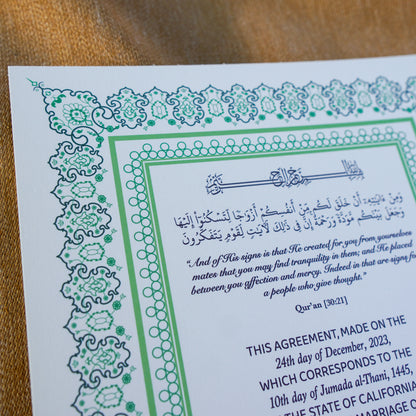 وَمِنْ ءَايَٰتِهِۦٓ أَنْ خَلَقَ لَكُم مِّنْ أَنفُسِكُمْ أَزْوَٰجًا لِّتَسْكُنُوٓا۟ إِلَيْهَا
وَجَعَلَ بَيْنَكُم مَّوَدَّةً وَرَحْمَةً إِنَّ فِى ذَٰلِكَ لَءَايَٰتٍ لِّقَوْمٍ يَتَفَكَّرُونَ
“And of His signs is that He created for you from yourselves
mates that you may find tranquility in them; and He placed
between you affection and mercy. Indeed in that are signs for
a people who give thought.”
Qur'an [30:21]
THIS AGREEMENT, MADE ON THE
24th day of December, 2023,
WHICH CORRESPONDS TO THE
10th day of Jumada al-Thani, 1445,
THE STATE OF CALIFORNIA
MARRIAGE